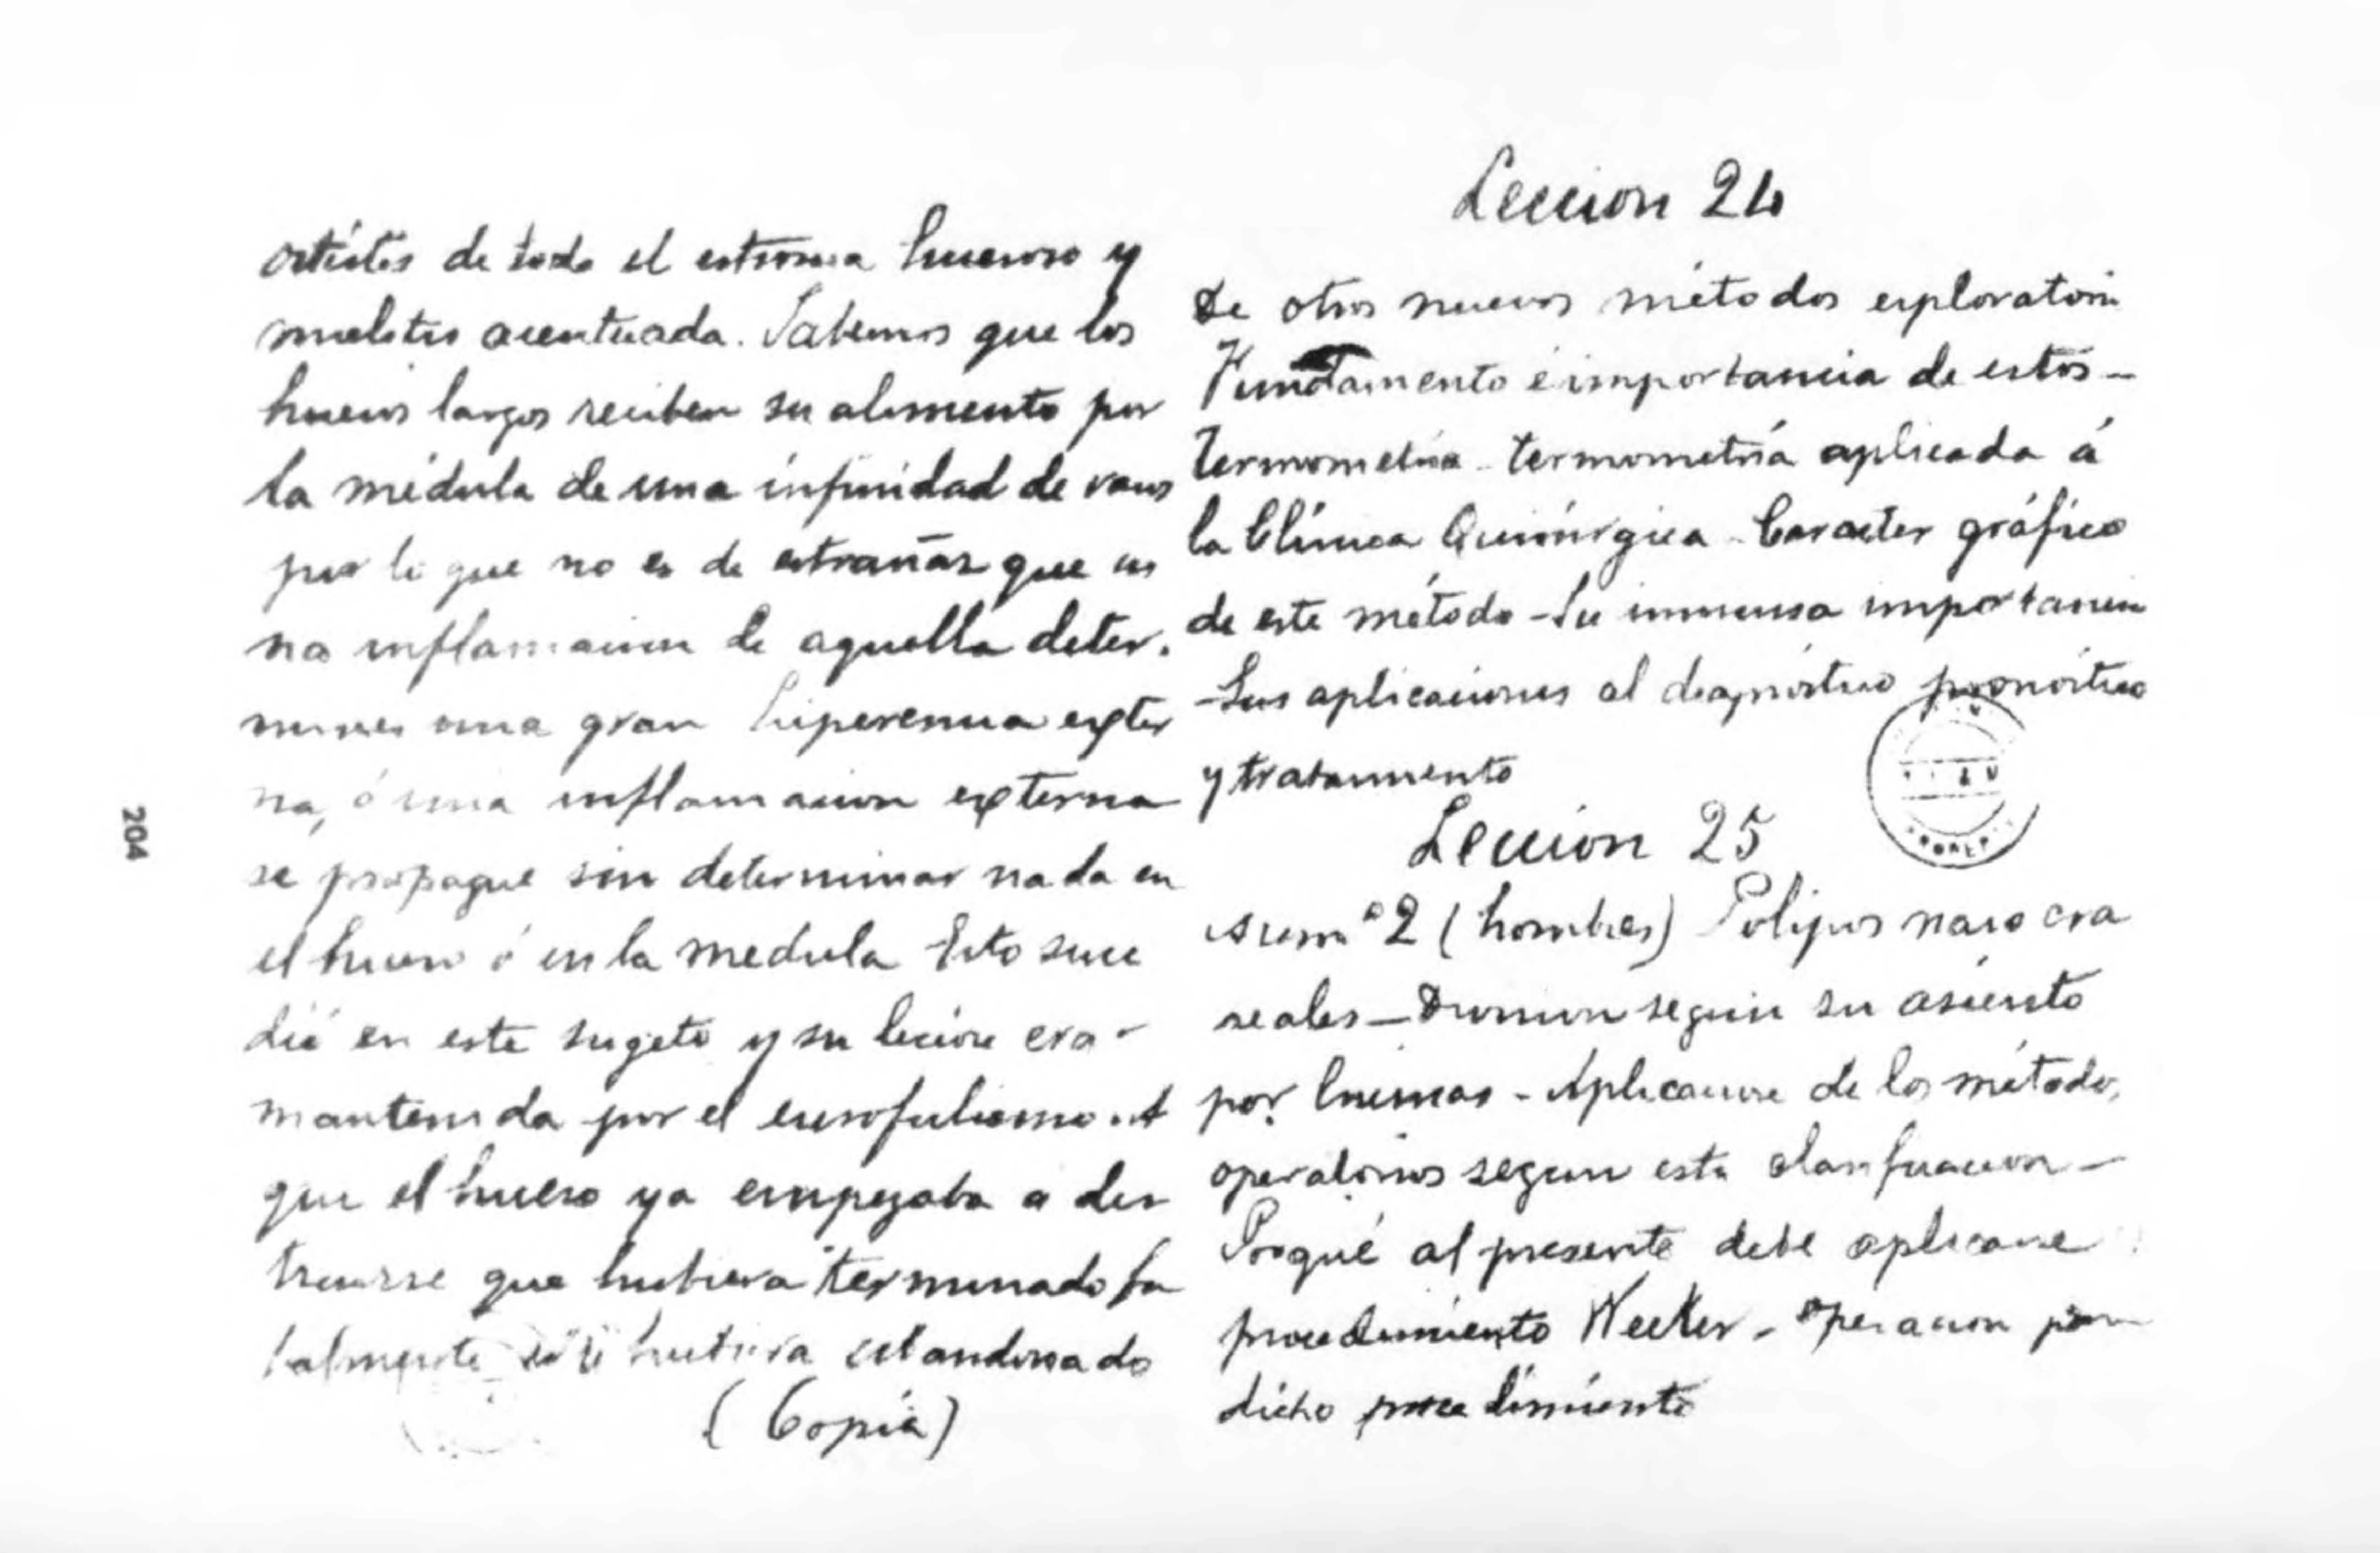 ostéitis de todo el estroma hueoso y
mielitis acentuada. Sabemos que los
huesos largos reciben su alimento por
la médula de una infinidad de vasos
por lo que no es de estrañar que u
na inflamacion de aquella deter.
mine una gran hiperemia exter
na, ó una inflamacion externa
se propague sin determinar nada en
el hueso ó en la medula Esto suce
dió en este sugeto y su lecion era -
mantenida por el escrofulismo. A
que el hueso ya empezaba a des
truirse que hubiera terminado fa
talmente si se hubiera abandonado
(Copia)
204
Leccion 24
De otros nuevos métodos exploratori
Fundamento é importancia de estos -
Termometría - termometría aplicada á
la Clínica Quirúrgica - Caracter gráfico
de este método - Su inmensa importancia
- Sus aplicaciones al diagnóstico pronóstico
y tratamiento
Leccion 25
num° 2 (hombres) Polipos naso
- Division segun su asiento
por - Aplicacion de los métodos
operatorios segun esta clasificacion -
Porqué al presente debe aplicarse
procedimiento Necker - operacion por
dicho procedimiento